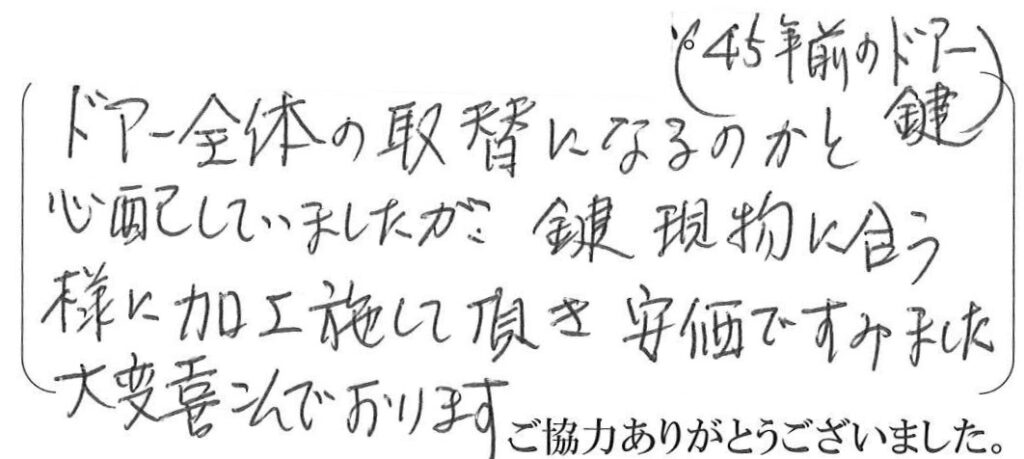 (45年前のドアー
鍵)
ドアー全体の取替になるのかと
心配していましたが、鍵現物に合う
様に加工施して頂き安価ですみました
大変喜こんでおります
ご協力ありがとうございました。